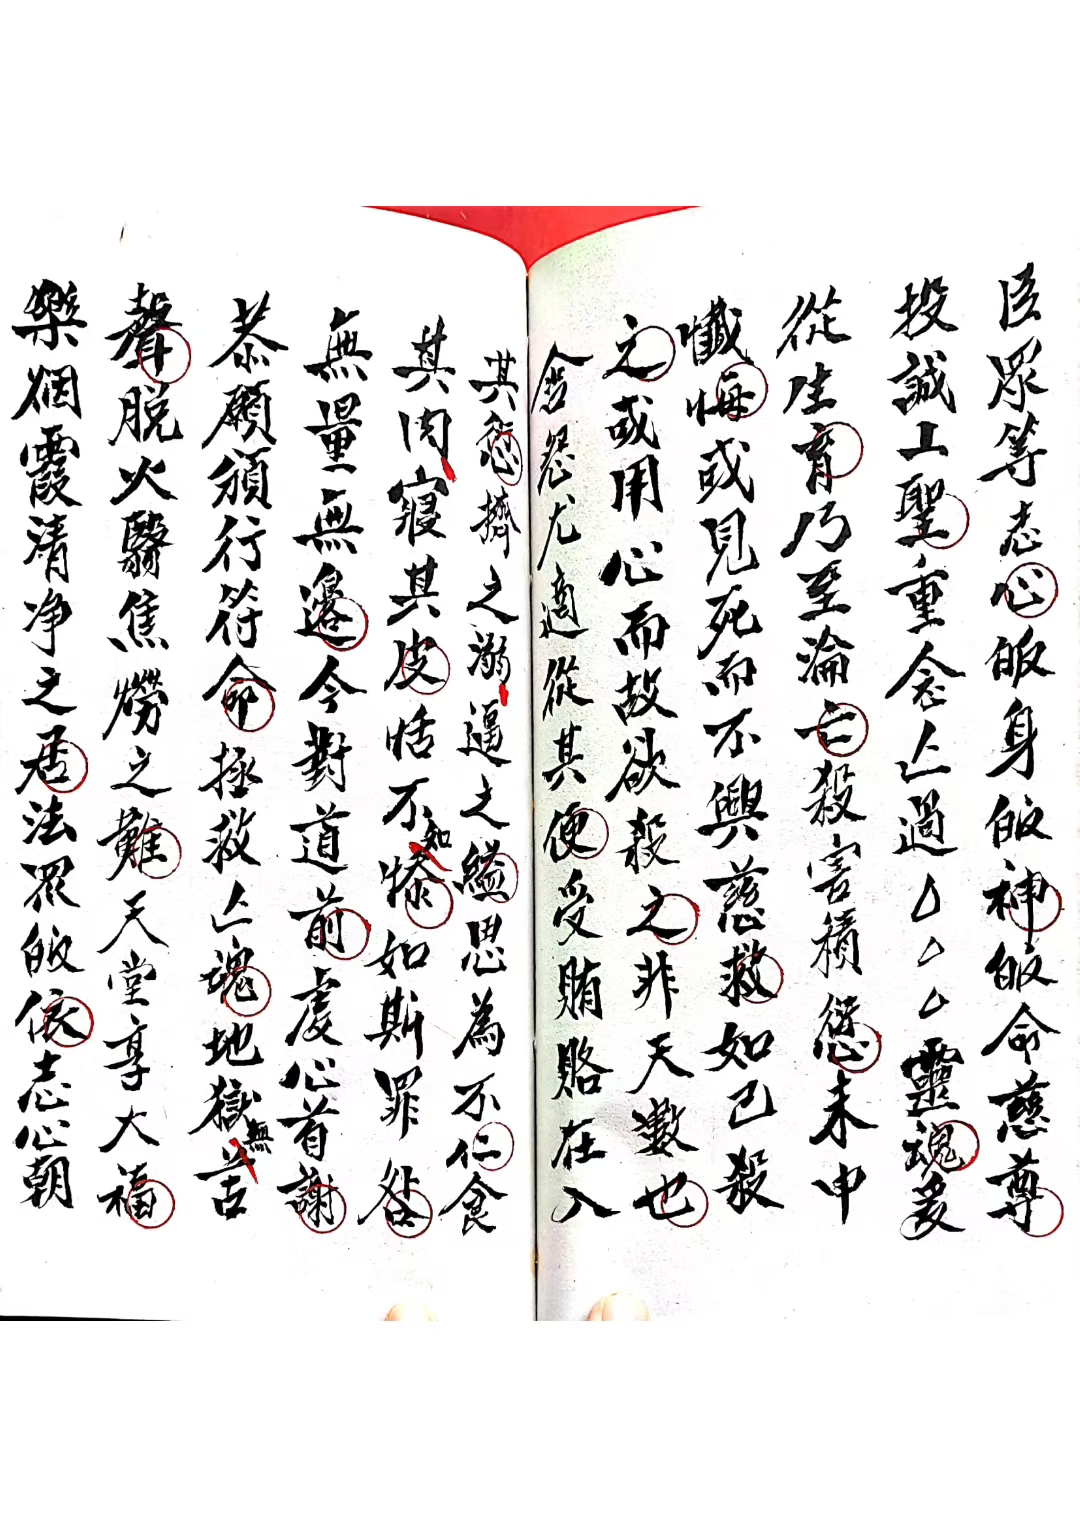 臣眾等志心皈身皈神皈命慈尊
投誠上聖重念亡過△△△靈魂爰
從生育乃至淪亡殺害積愆未申
懺悔或見死而不興慈救如己殺
之或用心而故欲殺之非天數也
含怨尤適從其便受賄賂在入
其愆擠之溺逼之縊思為不仁食
其肉寢其皮恬不知慘如斯罪咎
無量無邊今對道前虔心首謝
恭願頒行符命拯救亡魂地獄無苦
聲脫火翳焦㷶之難天堂享大福
樂烟霞清净之居法眾皈依志心朝